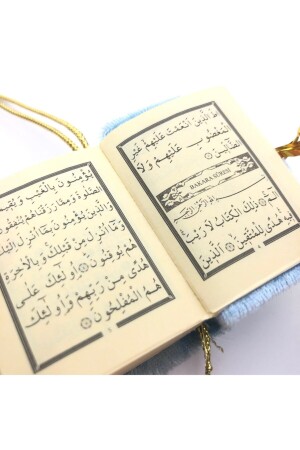 طَ الَّذِينَ اَنْعَمْتَ عَلَيْهِمْ غَيْرِ
الْمَغْضُوبِ عَلَيْهِمْ وَلَا
الضَّالِّينَ
BAKARA SÛRESİ
بِسْمِ اللهِ الرَّحْمٰنِ الرَّحِيمِ
الٓمٓ ذٰلِكَ الْكِتَابُ لَا رَيْبَ
فِيهِ هُدًى لِلْمُتَّقِينَ اَلَّذِينَ
يُؤْمِنُونَ بِالْغَيْبِ وَيُقِي
الصَّلٰوةَ وَمِمَّا رَزَقْنَاهُمْ يُنْفِقُونَ
وَالَّذِينَ يُؤْمِنُونَ بِمَا اُنْزِلَ اِلَيْكَ
وَمَا اُنْزِلَ مِنْ قَبْلِكَ وَبِالْاٰخِرَةِ
هُمْ يُوقِنُونَ اُولٰئِكَ عَلٰى
هُدًى مِنْ رَبِّهِمْ وَاُولٰئِكَ
هُمُ الْمُفْلِحُونَ